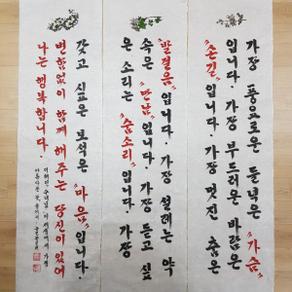 가장 풍요로운 들녘은 "가슴"
입니다. 가장 부드러운 바람은
"손길"입니다. 가장 멋진 춤은
"발걸음"입니다. 가장 설레는 약
속은 "만남"입니다. 가장 듣고 싶
은 소리는 "숨소리"입니다. 가장
갖고 싶은 보석은 "마음"입니다.
변함없이 함께 해주는 당신이 있어
나는 행복합니다.